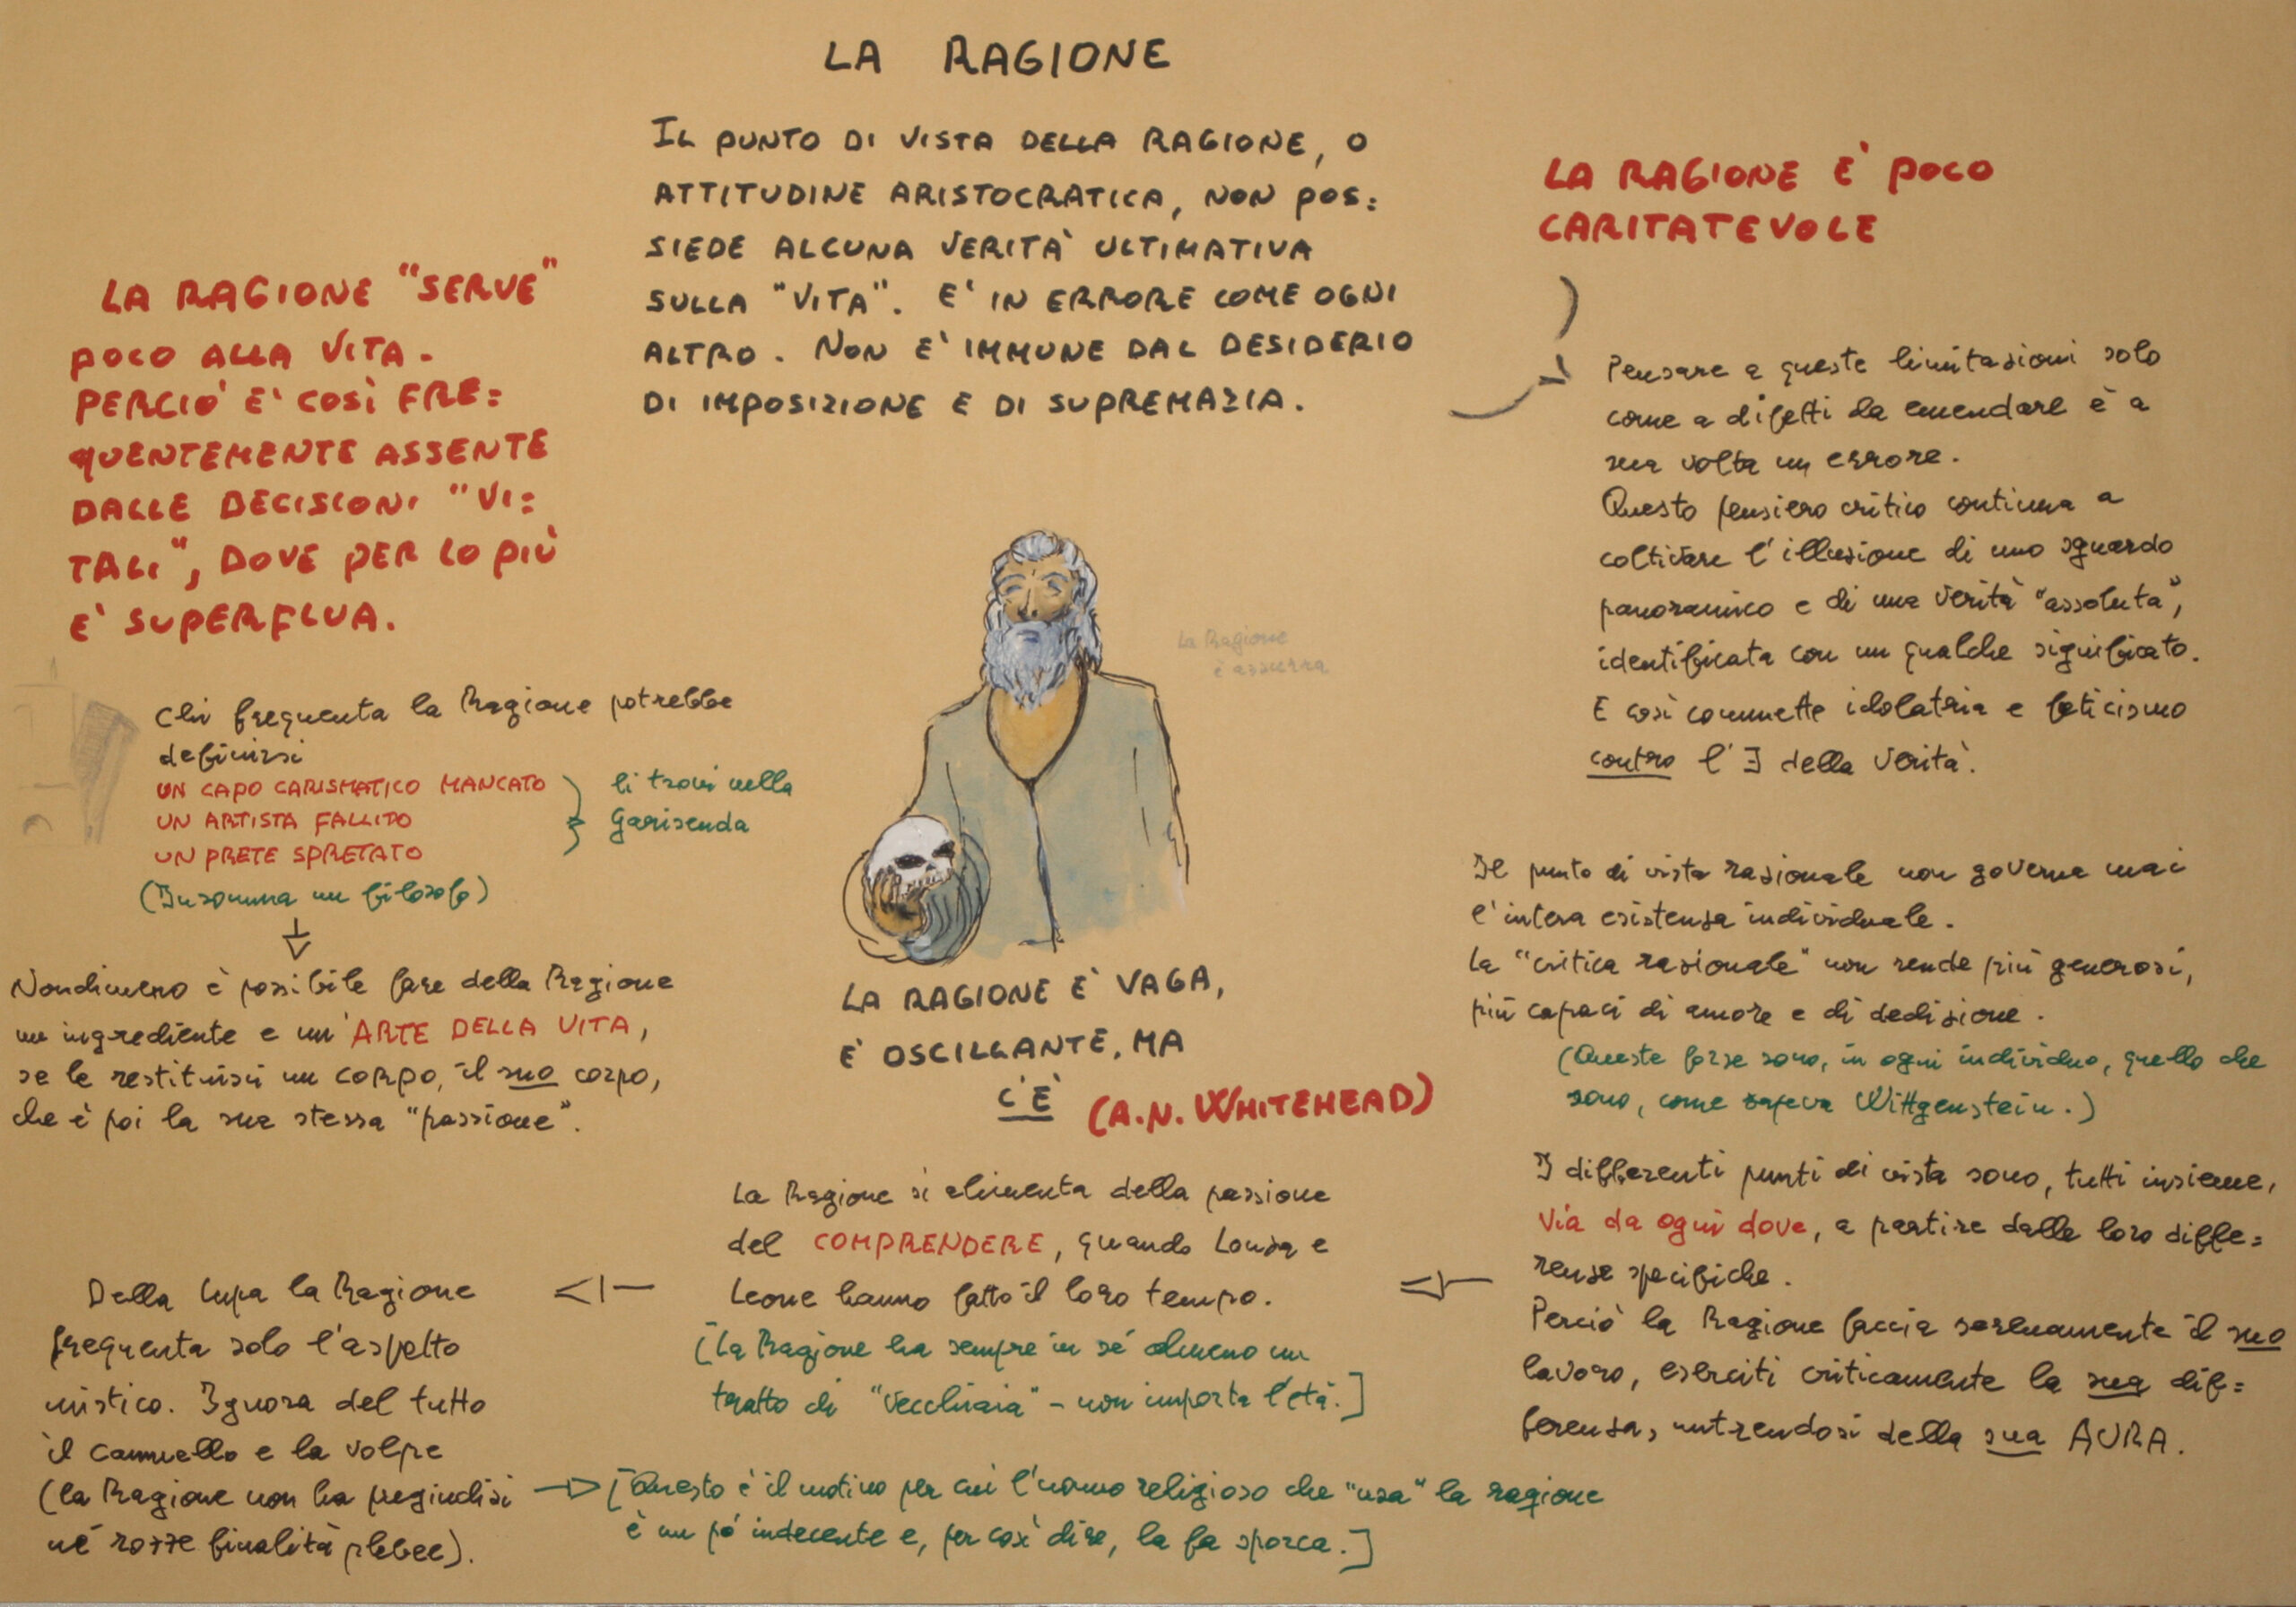 LA RAGIONE
IL PUNTO DI VISTA DELLA RAGIONE, O
ATTITUDINE ARISTOCRATICA, NON POS=
SIEDE ALCUNA VERITÀ ULTIMATIVA
SULLA "VITA". E' IN ERRORE COME OGNI
ALTRO. NON E' IMMUNE DAL DESIDERIO
DI IMPOSIZIONE E DI SUPREMAZIA.
LA RAGIONE E' POCO
CARITATEVOLE
Pensare a queste limitazioni solo
come a difetti da emendare è a
sua volta un errore.
Questo pensiero critico continua a
coltivare l'illusione di uno sguardo
panoramico e di una verità "assoluta",
identificata con un qualche significato.
E così commette idolatria e feticismo
contro l'∃ della Verità.
LA RAGIONE "SERVE"
POCO ALLA VITA.
PERCIÒ E' COSÌ FRE=
QUENTEMENTE ASSENTE
DALLE DECISIONI "VI=
TALI", DOVE PER LO PIÙ
E' SUPERFLUA.
Chi frequenta la Ragione potrebbe
definirsi
UN CAPO CARISMATICO MANCATO
UN ARTISTA FALLITO
UN PRETE SPRETATO
(Insomma un filosofo)
li trovi nella
Garisenda
Nondimeno è possibile fare della Ragione
un ingrediente e un'ARTE DELLA VITA,
se le restituisci un corpo, il suo corpo,
che è poi la sua stessa "passione".
La Ragione
è azzurra
LA RAGIONE E' VAGA,
E' OSCILLANTE, MA
C'È (A.N. WHITEHEAD)
Il punto di vista razionale non governa mai
l'intera esistenza individuale.
La "critica razionale" non rende più generosi,
più capaci di amore e di dedizione.
(Queste forze sono, in ogni individuo, quello che
sono, come sapeva Wittgenstein.)
I differenti punti di vista sono, tutti insieme,
via da ogni dove, a partire dalle loro diffe=
renze specifiche.
Perciò la Ragione faccia serenamente il suo
lavoro, eserciti criticamente la sua dif=
ferenza, nutrendosi della sua AURA.
La Ragione si alimenta della passione
del COMPRENDERE, quando Lonza e
Leone hanno fatto il loro tempo.
[La Ragione ha sempre in sé almeno un
tratto di "vecchiaia" - non importa l'età.]
Della Lupa la Ragione
frequenta solo l'aspetto
mistico. Ignora del tutto
il cammello e la volpe
(la Ragione non ha pregiudizi
né rozze finalità plebee).
[Questo è il motivo per cui l'uomo religioso che "usa" la ragione
è un po' indecente e, per così dire, la fa sporca.]